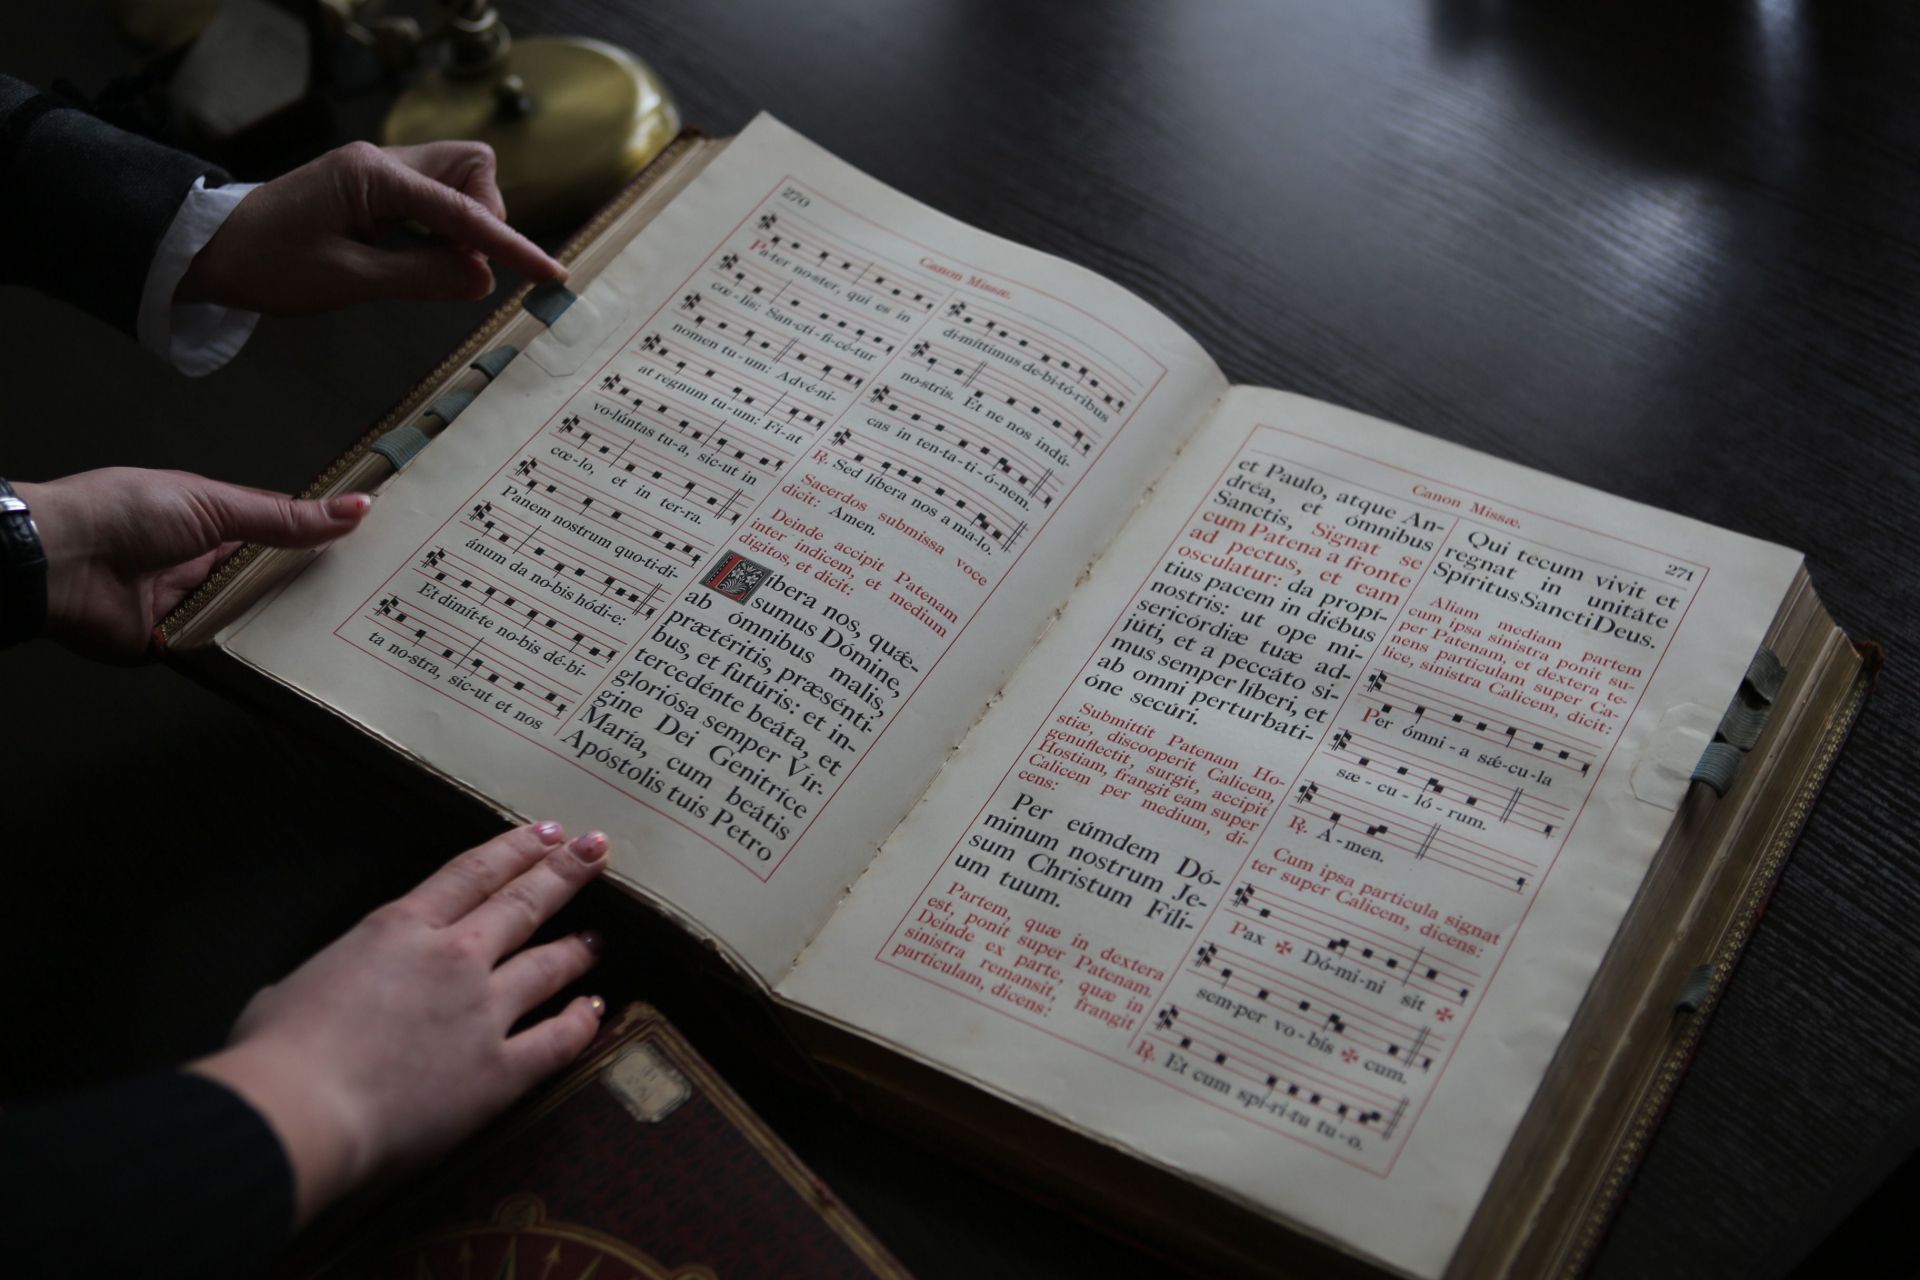 270
Canon Missæ.
Pa-ter no-ster, qui es in
cœ-lis: San-cti-fi-cé-tur
nomen tu-um: Advé-ni-
at regnum tu-um: Fi-at
vo-lúntas tu-a, sic-ut in
cœ-lo, et in ter-ra.
Panem nostrum quo-ti-di-
ánum da no-bis hódi-e:
Et dimít-te no-bis dé-bi-
ta no-stra, sic-ut et nos
di-míttimus de-bi-tó-ribus
no-stris. Et ne nos indú-
cas in ten-ta-ti-ó-nem.
℟. Sed líbera nos a ma-lo.
Sacerdos submissa voce
dicit: Amen.
Deinde accipit Patenam
inter indicem, et medium
digitos, et dicit:
Libera nos, quǽ-
sumus Dómine,
ab ómnibus malis,
prætéritis, præsénti-
bus, et futúris: et in-
tercedénte beáta, et
gloriósa semper Vír-
gine Dei Genitríce
María, cum beátis
Apóstolis tuis Petro
Canon Missæ.
271
et Paulo, atque An-
dréa, et ómnibus
Sanctis, Signat se
cum Patena a fronte
ad pectus, et eam
osculatur: da propí-
tius pacem in diébus
nostris: ut ope mi-
sericórdiæ tuæ ad-
júti, et a peccáto si-
mus semper líberi, et
ab omni perturbati-
óne secúri.
Submittit Patenam Ho-
stiæ, discooperit Calicem,
genuflectit, surgit, accipit
Hostiam, frangit eam super
Calicem per medium, di-
cens:
Per eúmdem Dó-
minum nostrum Je-
sum Christum Fíli-
um tuum.
Partem, quæ in dextera
est, ponit super Patenam.
Deinde ex parte, quæ in
sinistra remansit, frangit
particulam, dicens:
Qui tecum vivit et
regnat in unitáte
Spíritus Sancti Deus.
Aliam mediam partem
cum ipsa sinistra ponit su-
per Patenam, et dextera te-
nens particulam super Ca-
lice, sinistra Calicem, dicit:
Per ómni-a sǽ-cu-la
sæ-cu-ló-rum.
℟. A-men.
Cum ipsa particula signat
ter super Calicem, dicens:
Pax ✠ Dó-mi-ni sit ✠
sem-per vo-bís ✠ cum.
℟. Et cum spí-ri-tu tu-o.